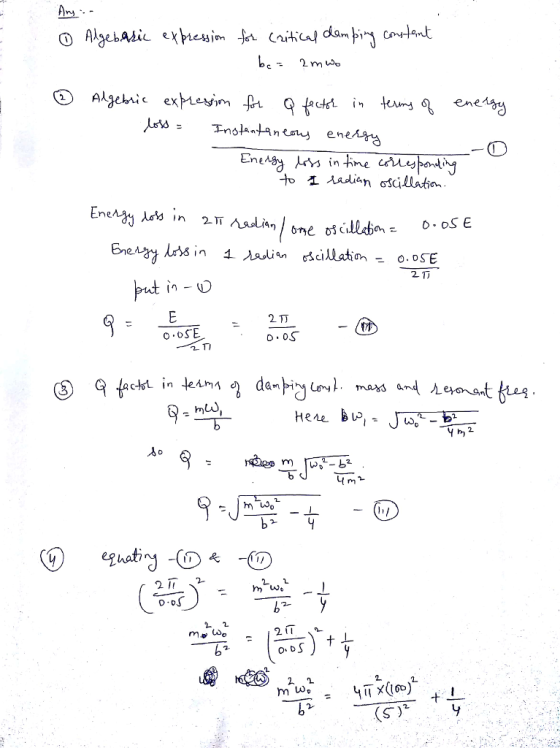 Ans :-
① Algebraic expression for critical damping constant
b_c = 2mω₀
② Algebric expression for Q factor in terms of energy
loss = Instantaneous energy / Energy loss in time corresponding to 1 radian oscillation. - ①
Energy loss in 2π radian / one oscillation = 0.05E
Energy loss in 1 radian oscillation = 0.05E / 2π
put in - ①
Q = E / (0.05E / 2π) = 2π / 0.05 - ⑪
③ Q factor in terms of damping const. mass and resonant freq.
Q = mω₁ / b Here ω₁ = √(ω₀² - b² / 4m²)
so Q = m / b √(ω₀² - b² / 4m²)
Q = √(m²ω₀² / b² - 1 / 4) - (iii)
④ equating - (ii) & - (iii)
(2π / 0.05)² = m²ω₀² / b² - 1 / 4
m²ω₀² / b² = (2π / 0.05)² + 1 / 4
m²ω₀² / b² = 4π² × (100)² / (5)² + 1 / 4